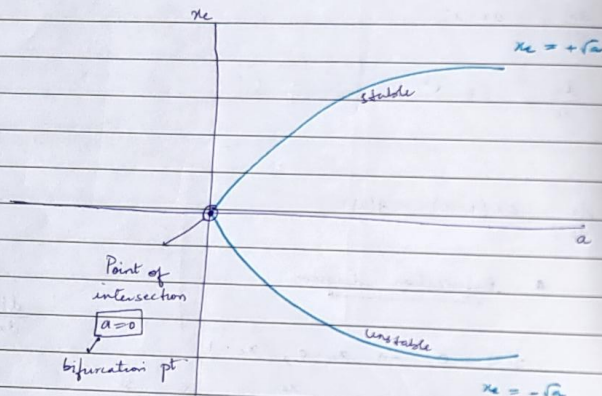 xe
xe = +√a
stable
a
Point of
intersection
a=0
bifurcation pt
unstable
xe = -√a